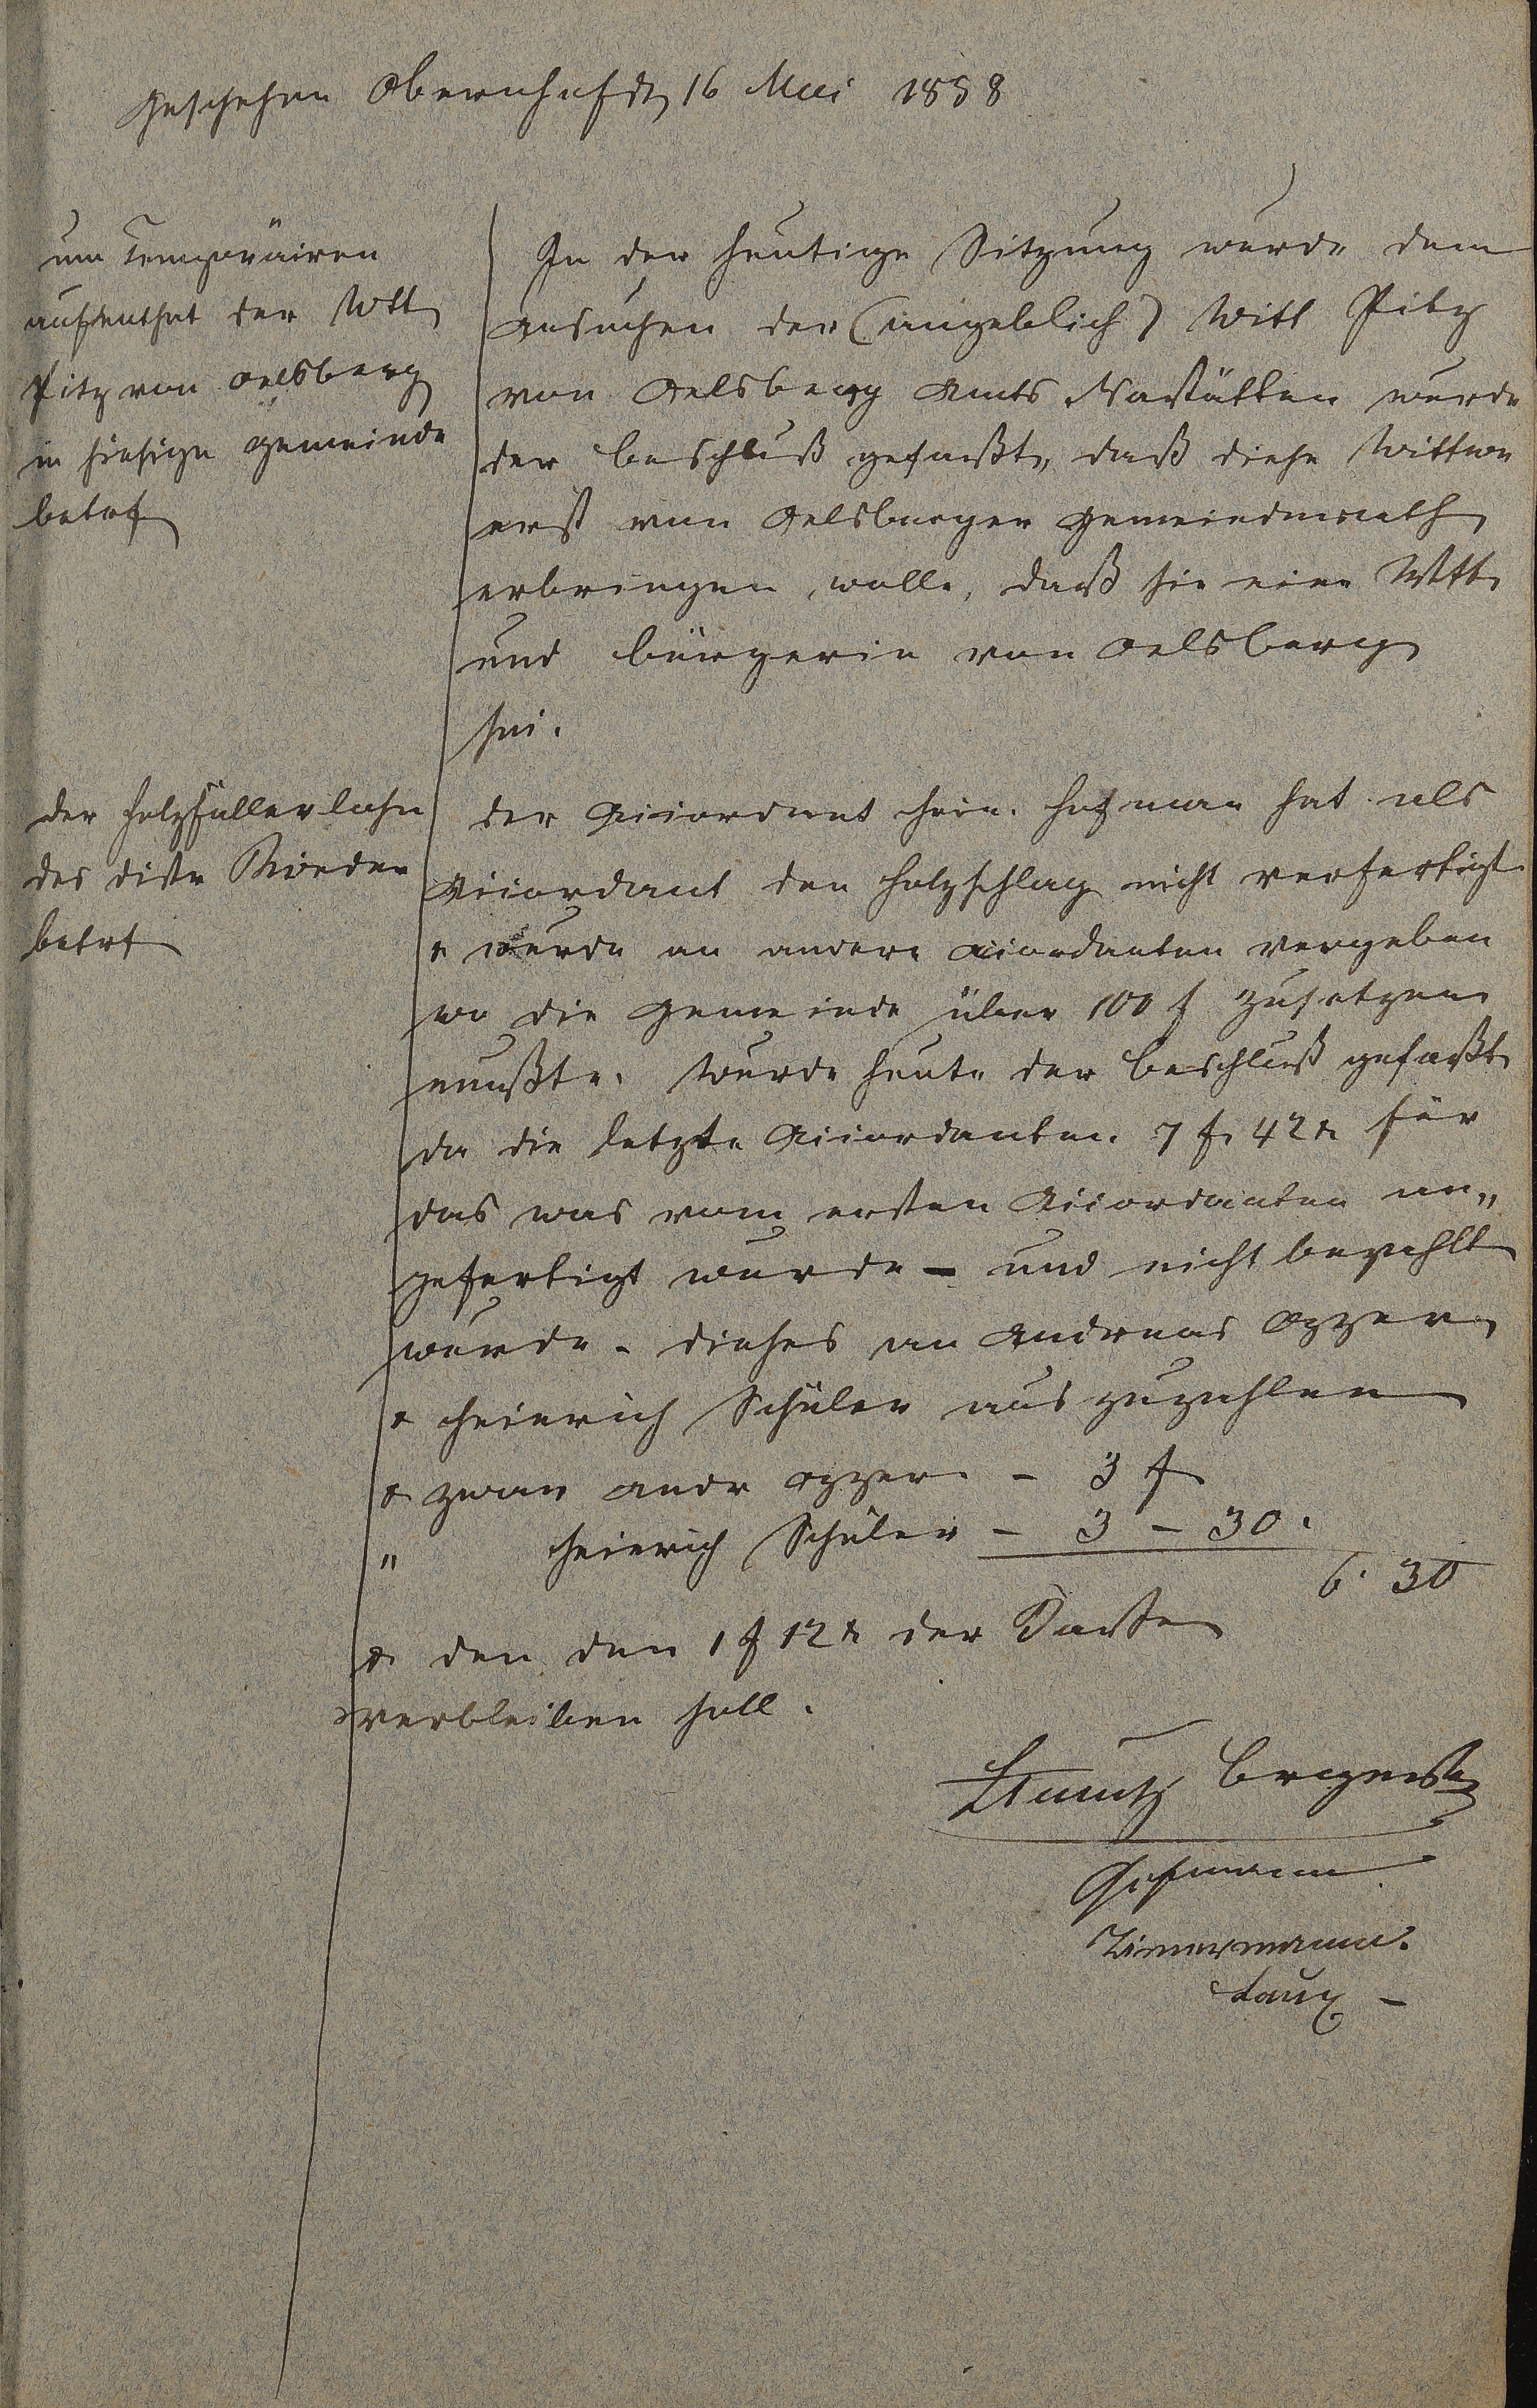 Geschehen Obernhof d 16 Mai 1858
um Temporäiren
aufenthat der Wtt
Pitz von Oelsberg
in hiesige Gemeinde
betrf
In der heutige Sitzung wurde dem
Ansuchen der (angeblich) Witt Pitz
von Oelsberg Amts Nastätten wurde
der beschluß gefaßt, daß diese Wittwe
erst von Oelsberger Gemeinderath
erbringen wolle, daß sie eine Wtt
und bürgerin von Oelsberg
sei.
der Holzfällerlohn
des distr Röeder
betrf
der Accordant Hein. Hofman hat als
Accordant den Holzschlag nicht verfertigt
& wurde an andere Accordanten vergeben
wo die Gemeinde über 100 f zusetzen
mußte. Wurde heute der beschluß gefaßt
da die letzte Accordanten 7 f. 42 x für
das was vom ersten Accordanten an„
gefertigt wurde – und nicht bezahlt
wurde – dieses an Andreas
& Heinrich Schüler aus zuzahlen
& zwar Andr – 3 f
" Heinrich Schüler – 3 – 30.
6. 30
& den den 1 f 12 x der Kasse
verbleiben soll.
Brgmstr
Hofmann
Zimmermann.
Laux –